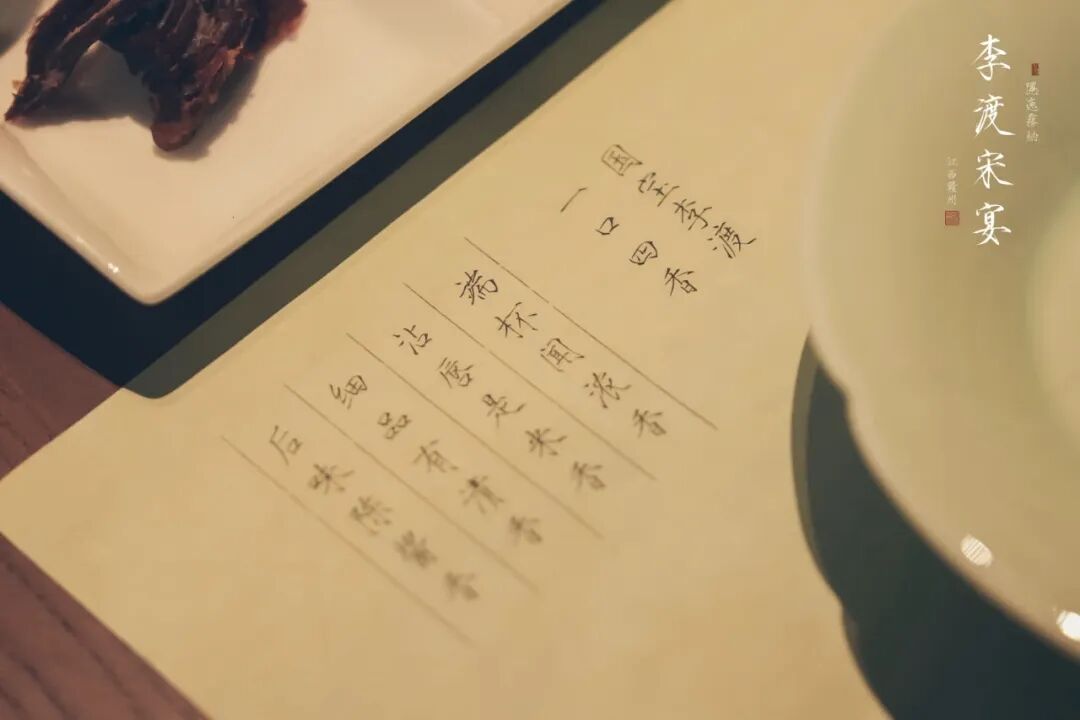 李渡宋宴
江西赣州
国宝李渡
一口四香
端杯闻浓香
沾唇是米香
细品有清香
后味陈酱香